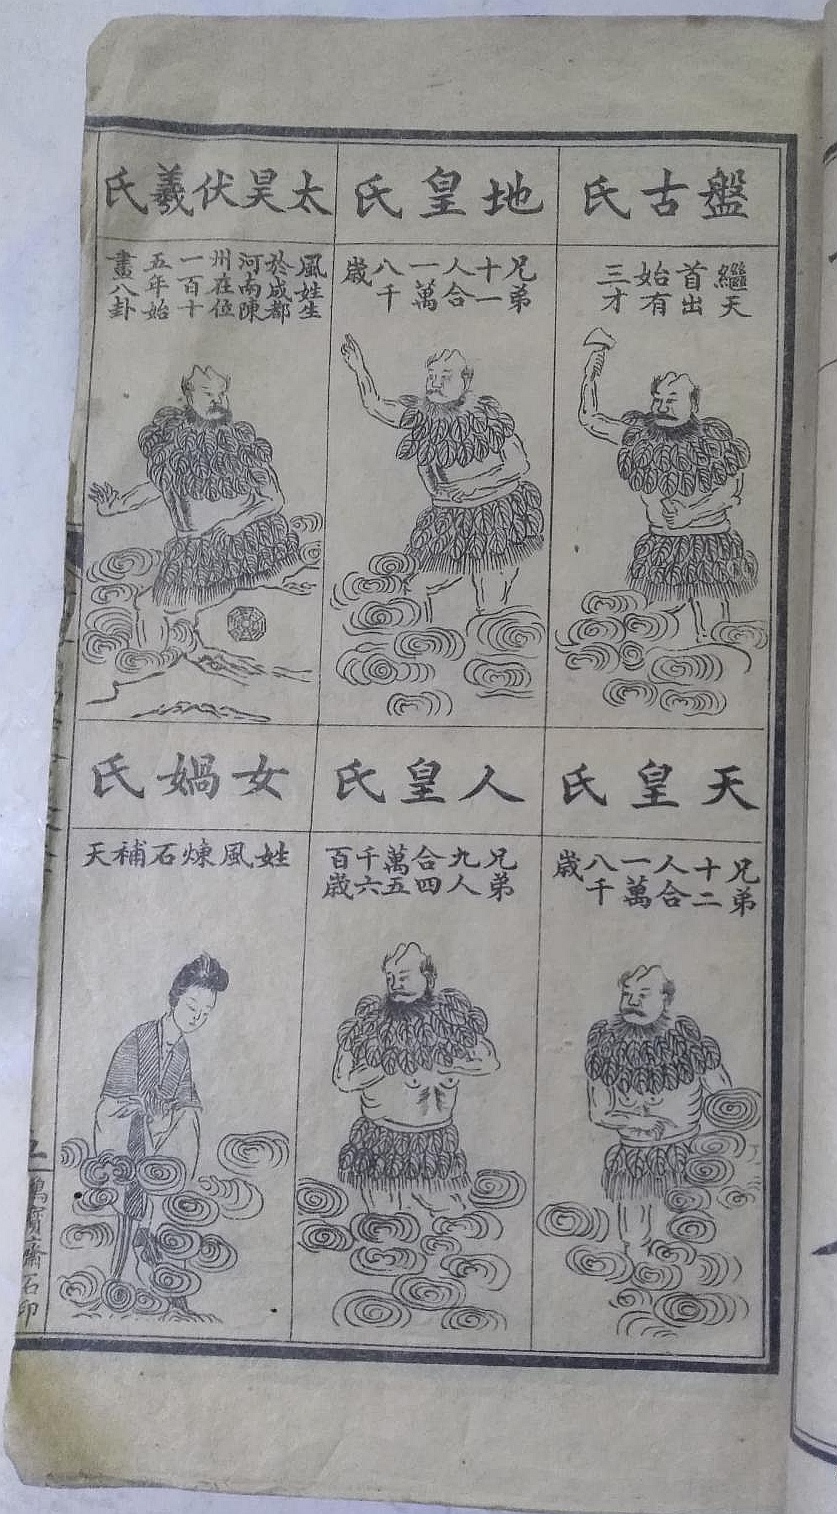 盤古氏
繼天
首出
始有
三才
天皇氏
兄弟
十二
人合
一萬
八千
歲
地皇氏
兄弟
十一
人合
一萬
八千
歲
人皇氏
兄弟
九人
合四
萬五
千六
百歲
太昊伏羲氏
風姓生
於成都
河南陳
州在位
一百十
五年始
畫八卦
女媧氏
姓風煉石補天
寶齋石印